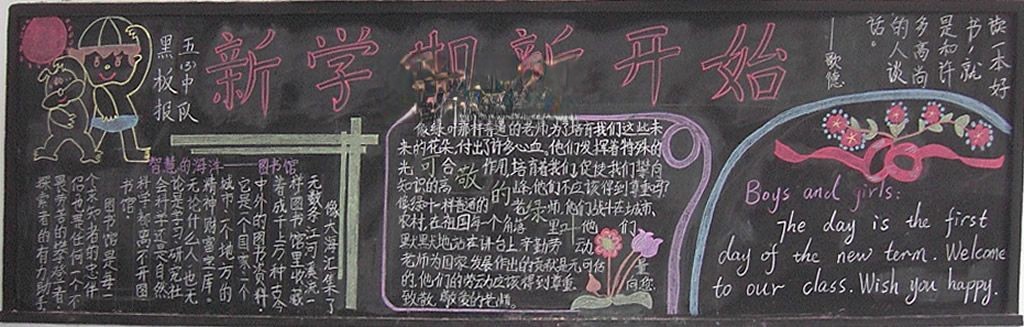 五(3)中队
黑板报
新学期新开始
读一本好
书,就
是和许
多高尚
的人谈
话。
——歌德
智慧的海洋——图书馆
像大海汇集了
无数条江河溪流一
样,图书馆里收藏
着成千上万种古今
中外的图书资料。
它是一个国家、一个
城市、一个地方的
精神财富宝库。
无论什么人,也无
论是学习、研究社
会科学还是自然
科学,都离不开图
书馆。
图书馆是每一
个求知者的忠实伙
伴,也是任何一个不
畏劳苦的攀登者、
探索者的有力助手
像绿叶那样普通的老师,为了培育我们这些未
来的花朵,付出了许多心血,他们发挥着特殊的
光合作用,培育着我们,促使我们攀向
知识的高峰,他们不应该得到尊重吗?
像绿叶一样普通的老师,他们战斗在城市、
农村,在祖国每一个角落里工作,他们
默默地站在讲台上,辛勤劳动
老师为国家发展作出的贡献是无可估量
的,他们的劳动应该得到尊重,向您
致敬,敬爱的老师。
可敬的绿叶
Boys and girls:
The day is the first
day of the new term. Welcome
to our class. Wish you happy.